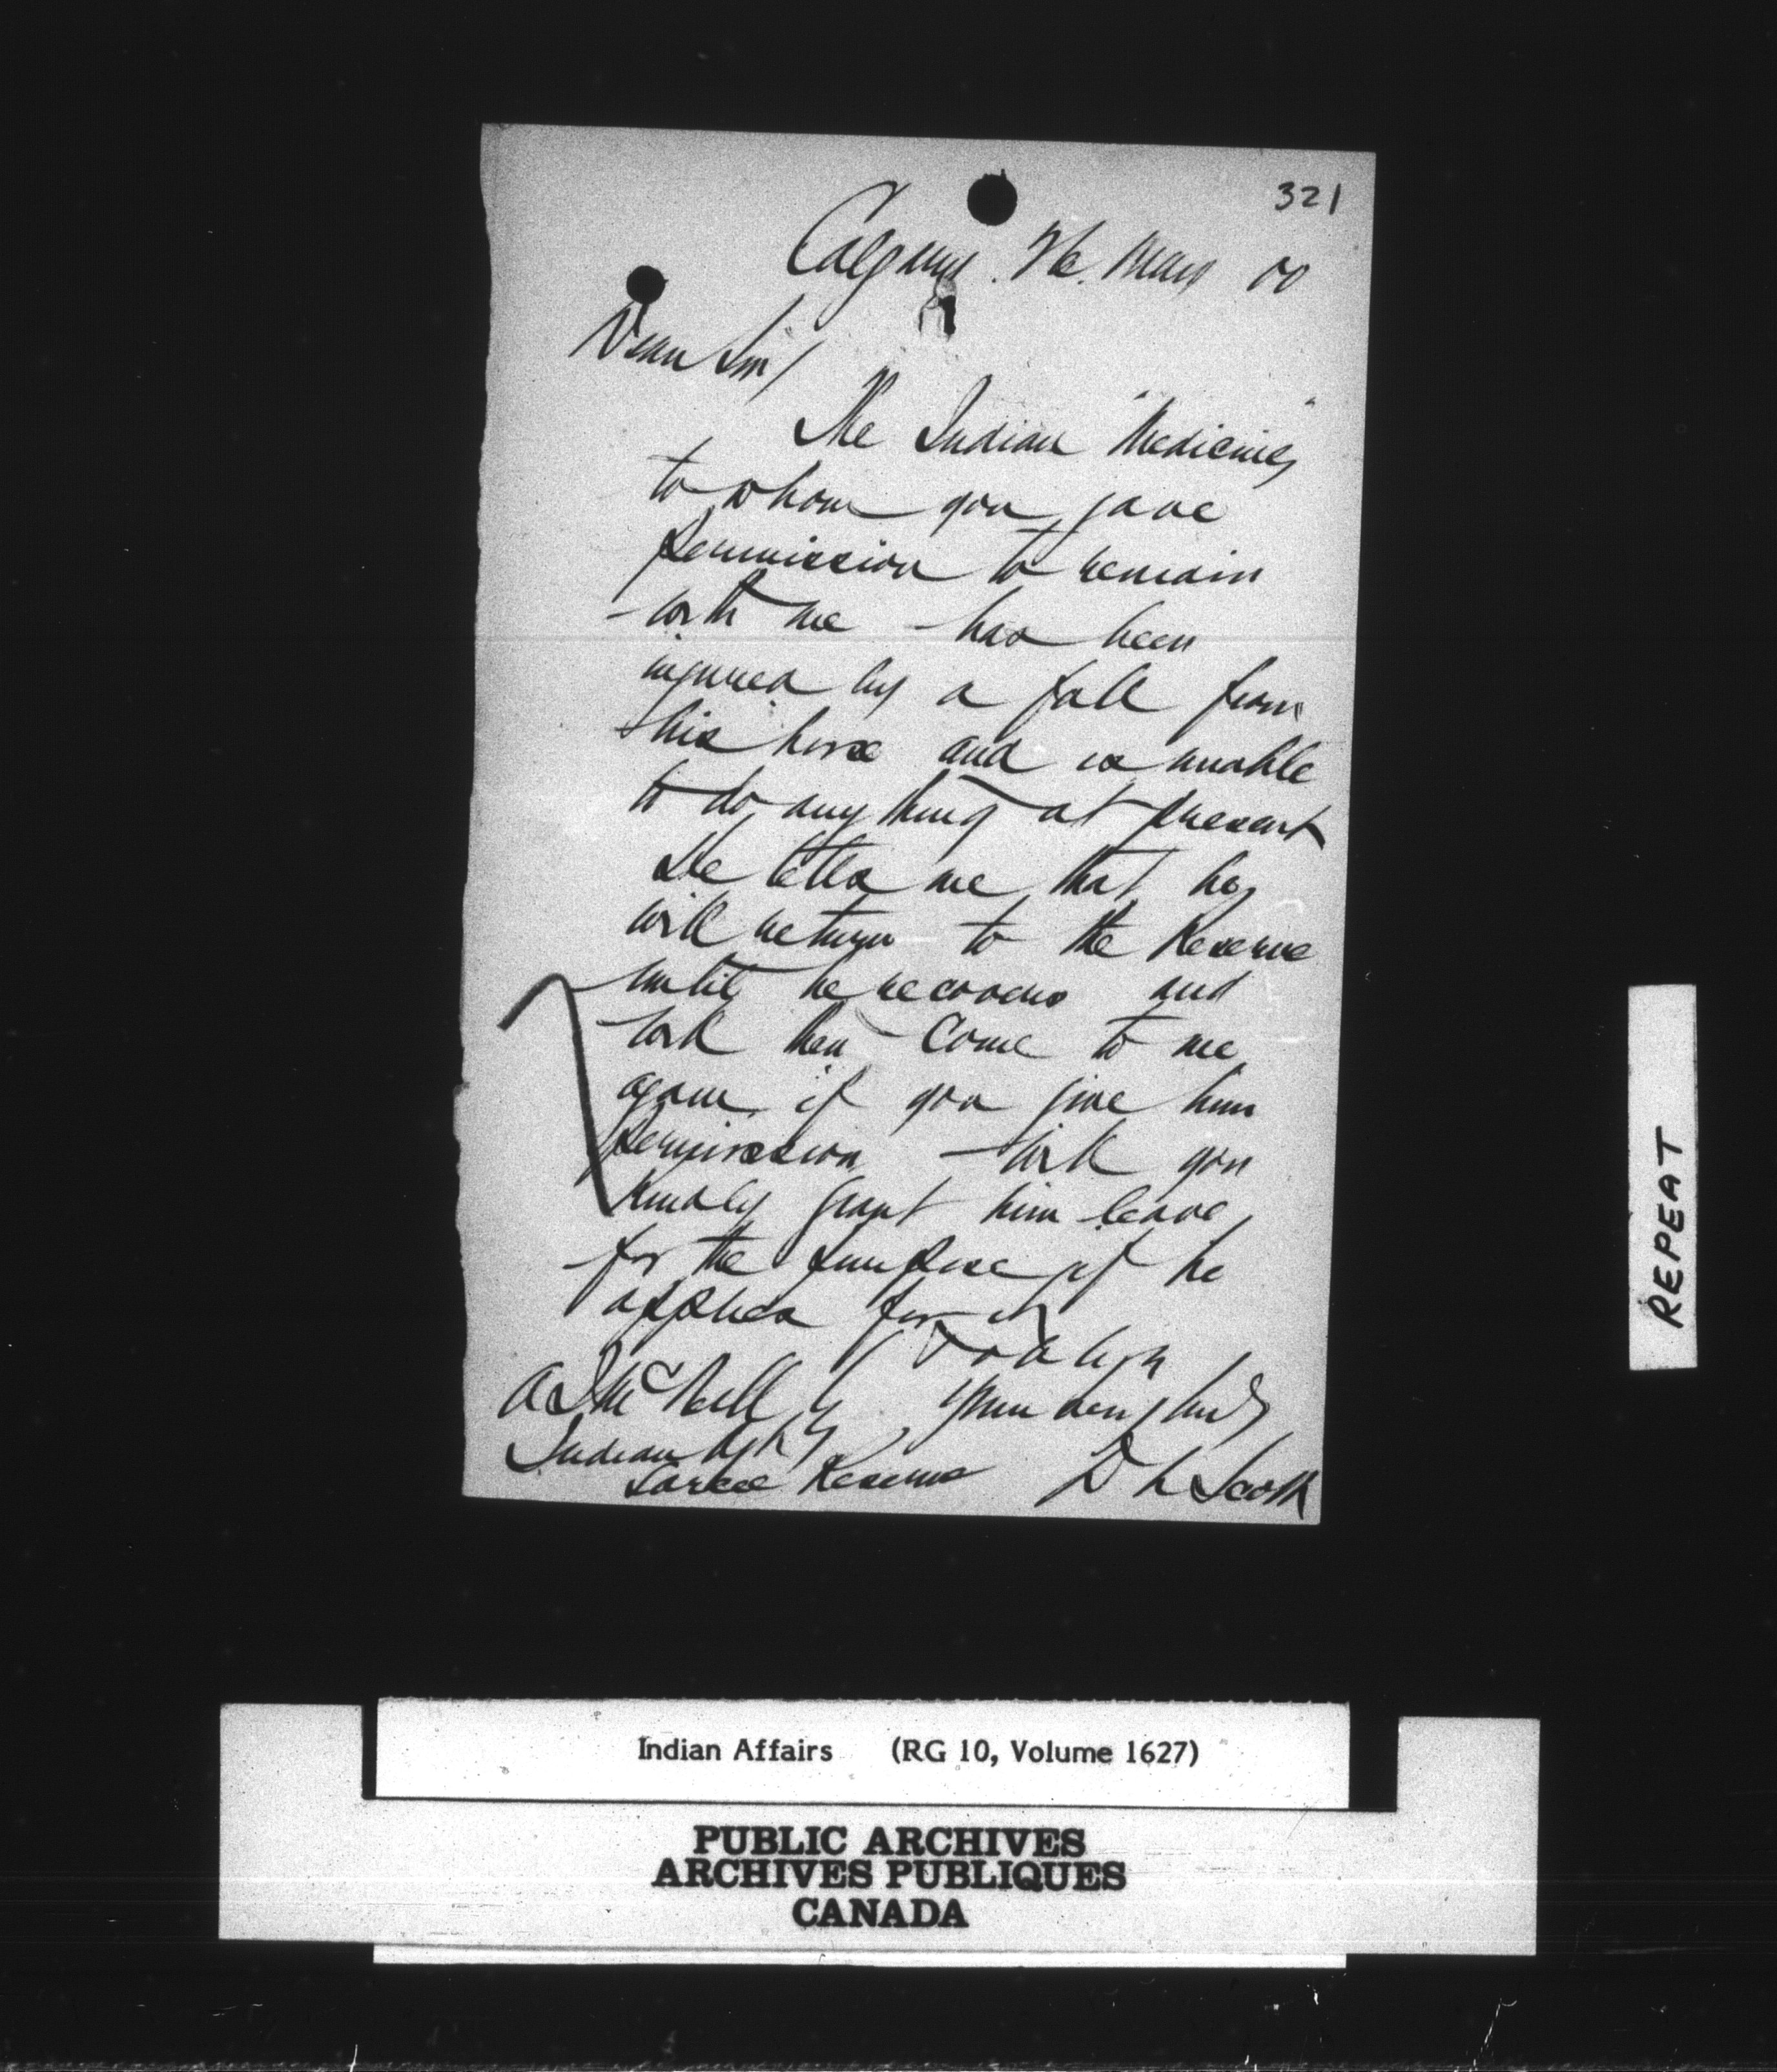 321
Calgary. 26. May 00
Dear Sir/
The Indian "Medicine"
to whom you gave
permission to remain
with me has been
injured by a fall from
his horse and is unable
to do anything at present
He tells me that he
will return to the Reserve
until he recovers and
will then come to me
again if you give him
permission will you
kindly grant him leave
for the purpose if he
applies for it
A J McNeill Esq yours
Indian Agt
Sarcee Reserve D L Scott
REPEAT
Indian Affairs (RG 10, Volume 1627)
PUBLIC ARCHIVES
ARCHIVES PUBLIQUES
CANADA